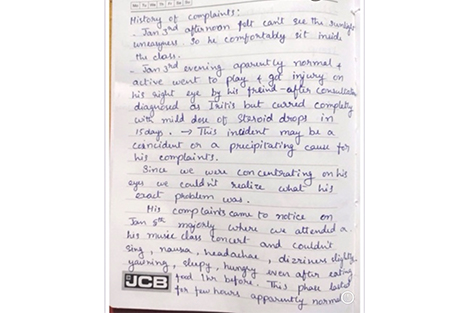 Mo Tu We Th Fr Sa Su
History of complaints:
- Jan 3rd afternoon felt can't see the sunlight
uneasyness. So he comfortably sit inside
the class.
- Jan 3rd evening aparently normal &
active went to play & got injury on
his right eye by his freind - after consultation
diagnosed as Iritis but curred completly
with mild dose of steroid drops in
15days. → This incident may be a
coincident or a precipitating cause for
his complaints.
Since we were concentrating on his
eyes we couldn't realize what his
exact problem was.
His complaints came to notice on
Jan 5th majorly where we attended a
his music class concert and couldn't
sing, nausea, headachae, dizziness slightly
yawning, sleepy, hungry even after eating
food 1hr before. This phase lasted
for few hours apparently normal
JCB